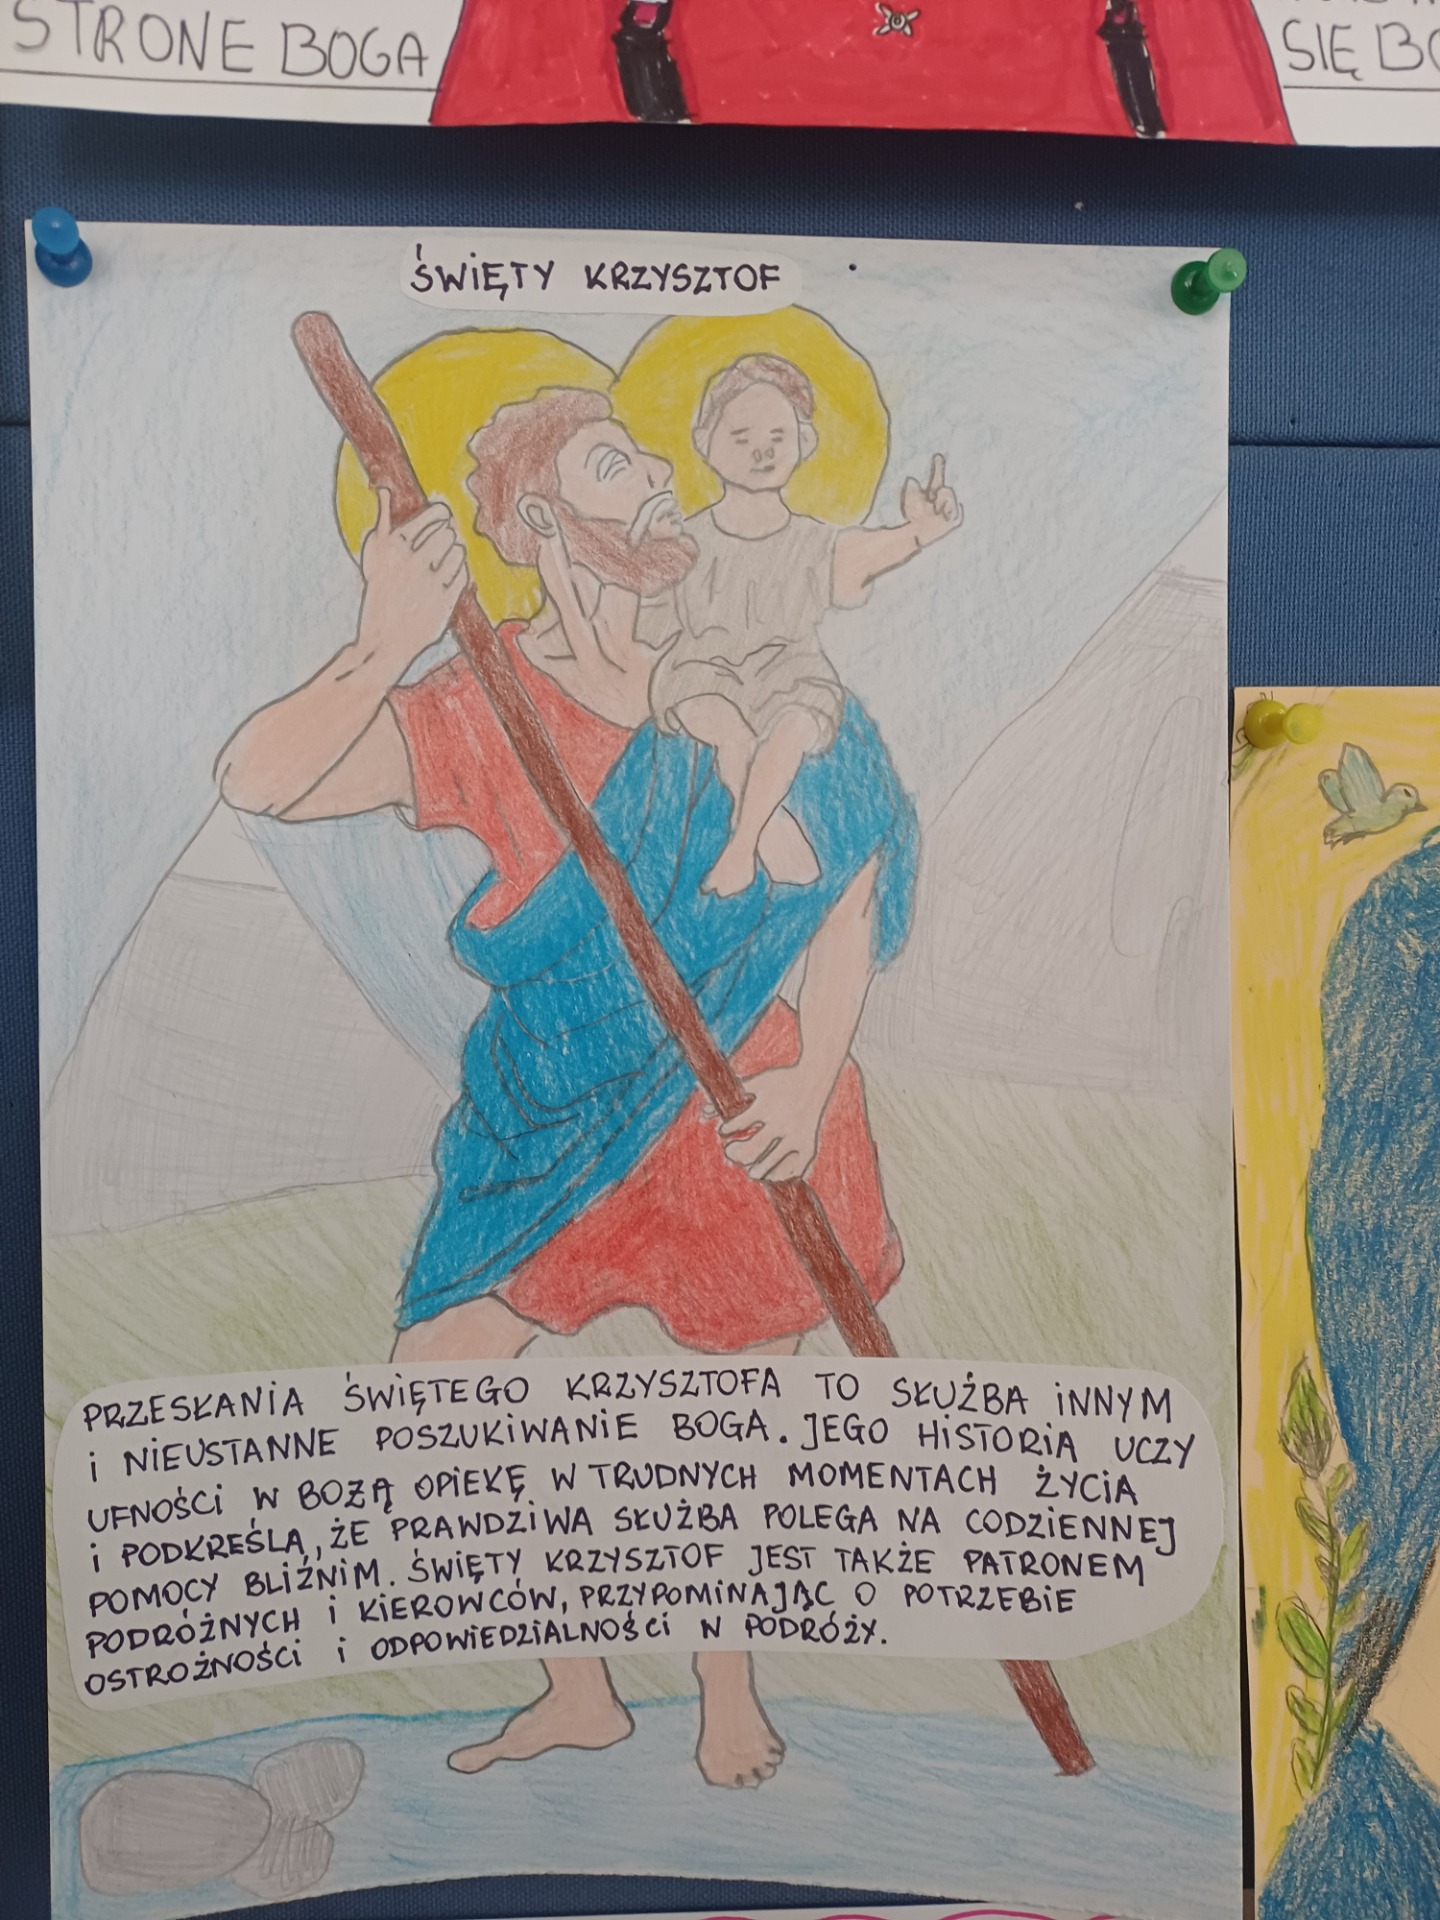 STRONE BOGA
SIĘ
ŚWIĘTY KRZYSZTOF
PRZESŁANIA ŚWIĘTEGO KRZYSZTOFA TO SŁUŹBA INNYM
I NIEUSTANNE POSZUKIWANIE BOGA. JEGO HISTORIA UCZY
UFNOŚCI W BOZĄ OPIEKĘ W TRUDNYCH MOMENTACH ŻYCIA
I PODKREŚLA, ŻE PRAWDZIWA SŁUŻBA POLEGA NA CODZIENNEJ
POMOCY BLIŹNIM. ŚWIĘTY KRZYSZTOF JEST TAKŻE PATRONEM
PODRÓŻNYCH I KIEROWCÓW, PRZYPOMINAJĄC O POTRZEBIE
OSTROŻNOŚCI I ODPOWIEDZIALNOŚCI W PODRÓŻY.